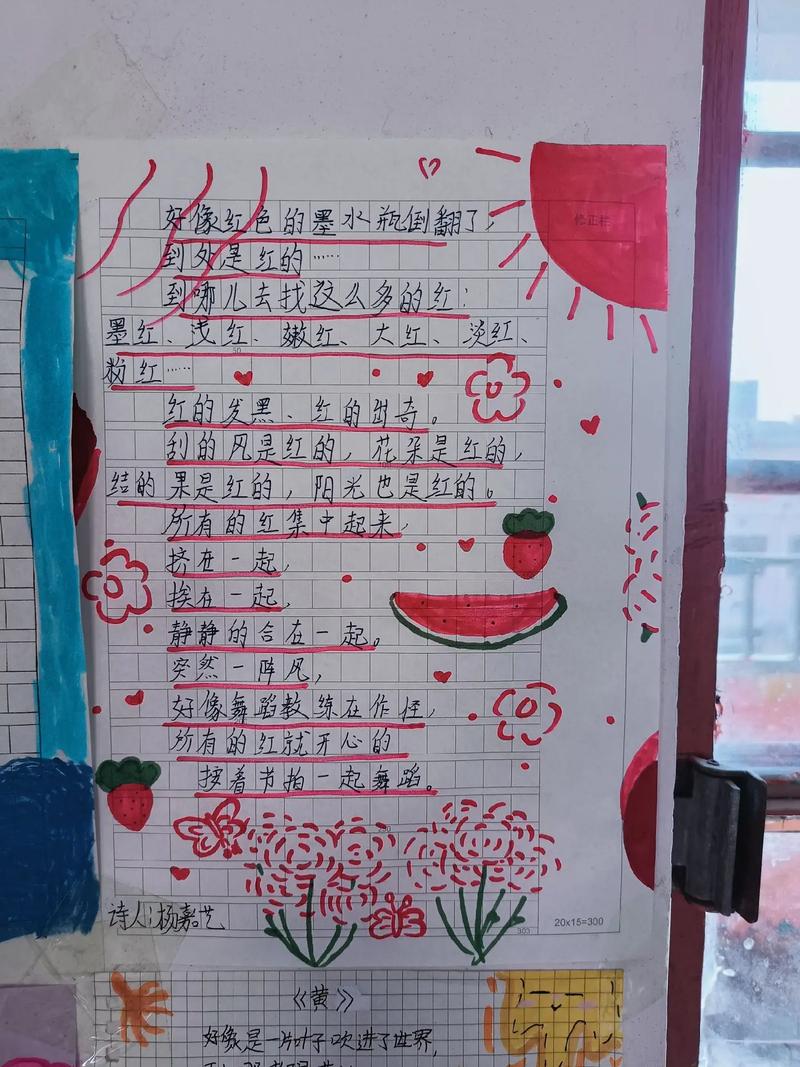 好像红色的墨水瓶倒翻了,
修正栏
到处是红的……
到哪儿去找这么多的红:
墨红、浅红、嫩红、大红、淡红、
粉红……
红的发黑、红的出奇。
刮的风是红的,花朵是红的,
结的果是红的,阳光也是红的。
所有的红集中起来,
挤在一起,
挨在一起,
静静的合在一起。
突然一阵风,
好像舞蹈教练在作怪,
所有的红就开心的
按着节拍一起舞蹈。
诗人:杨嘉艺
20x15=300
303
《黄》
好像是一片叶子吹进了世界,